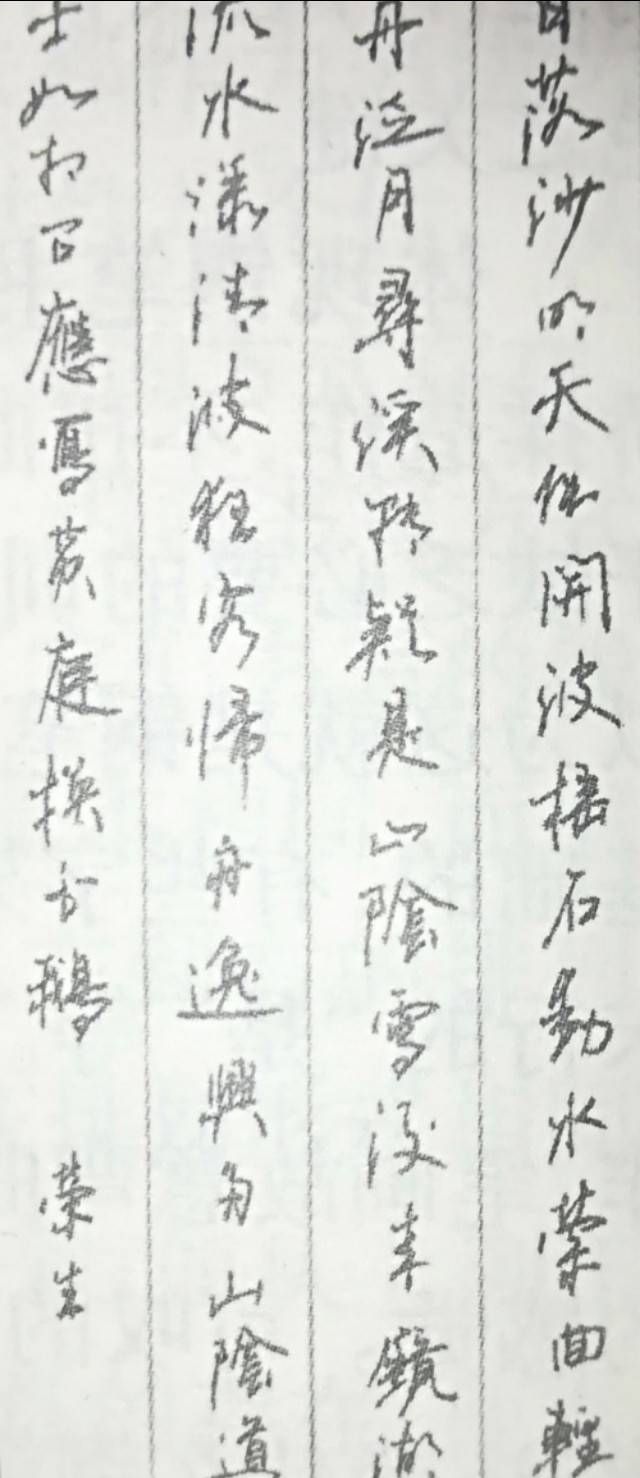 日落沙明天倒開波搖石動水縈回輕
舟泛月尋溪轉疑是山陰雪後來鏡湖
流水漾清波狂客歸舟逸興多山陰道
士如相召應寫黃庭換白鵝 榮生